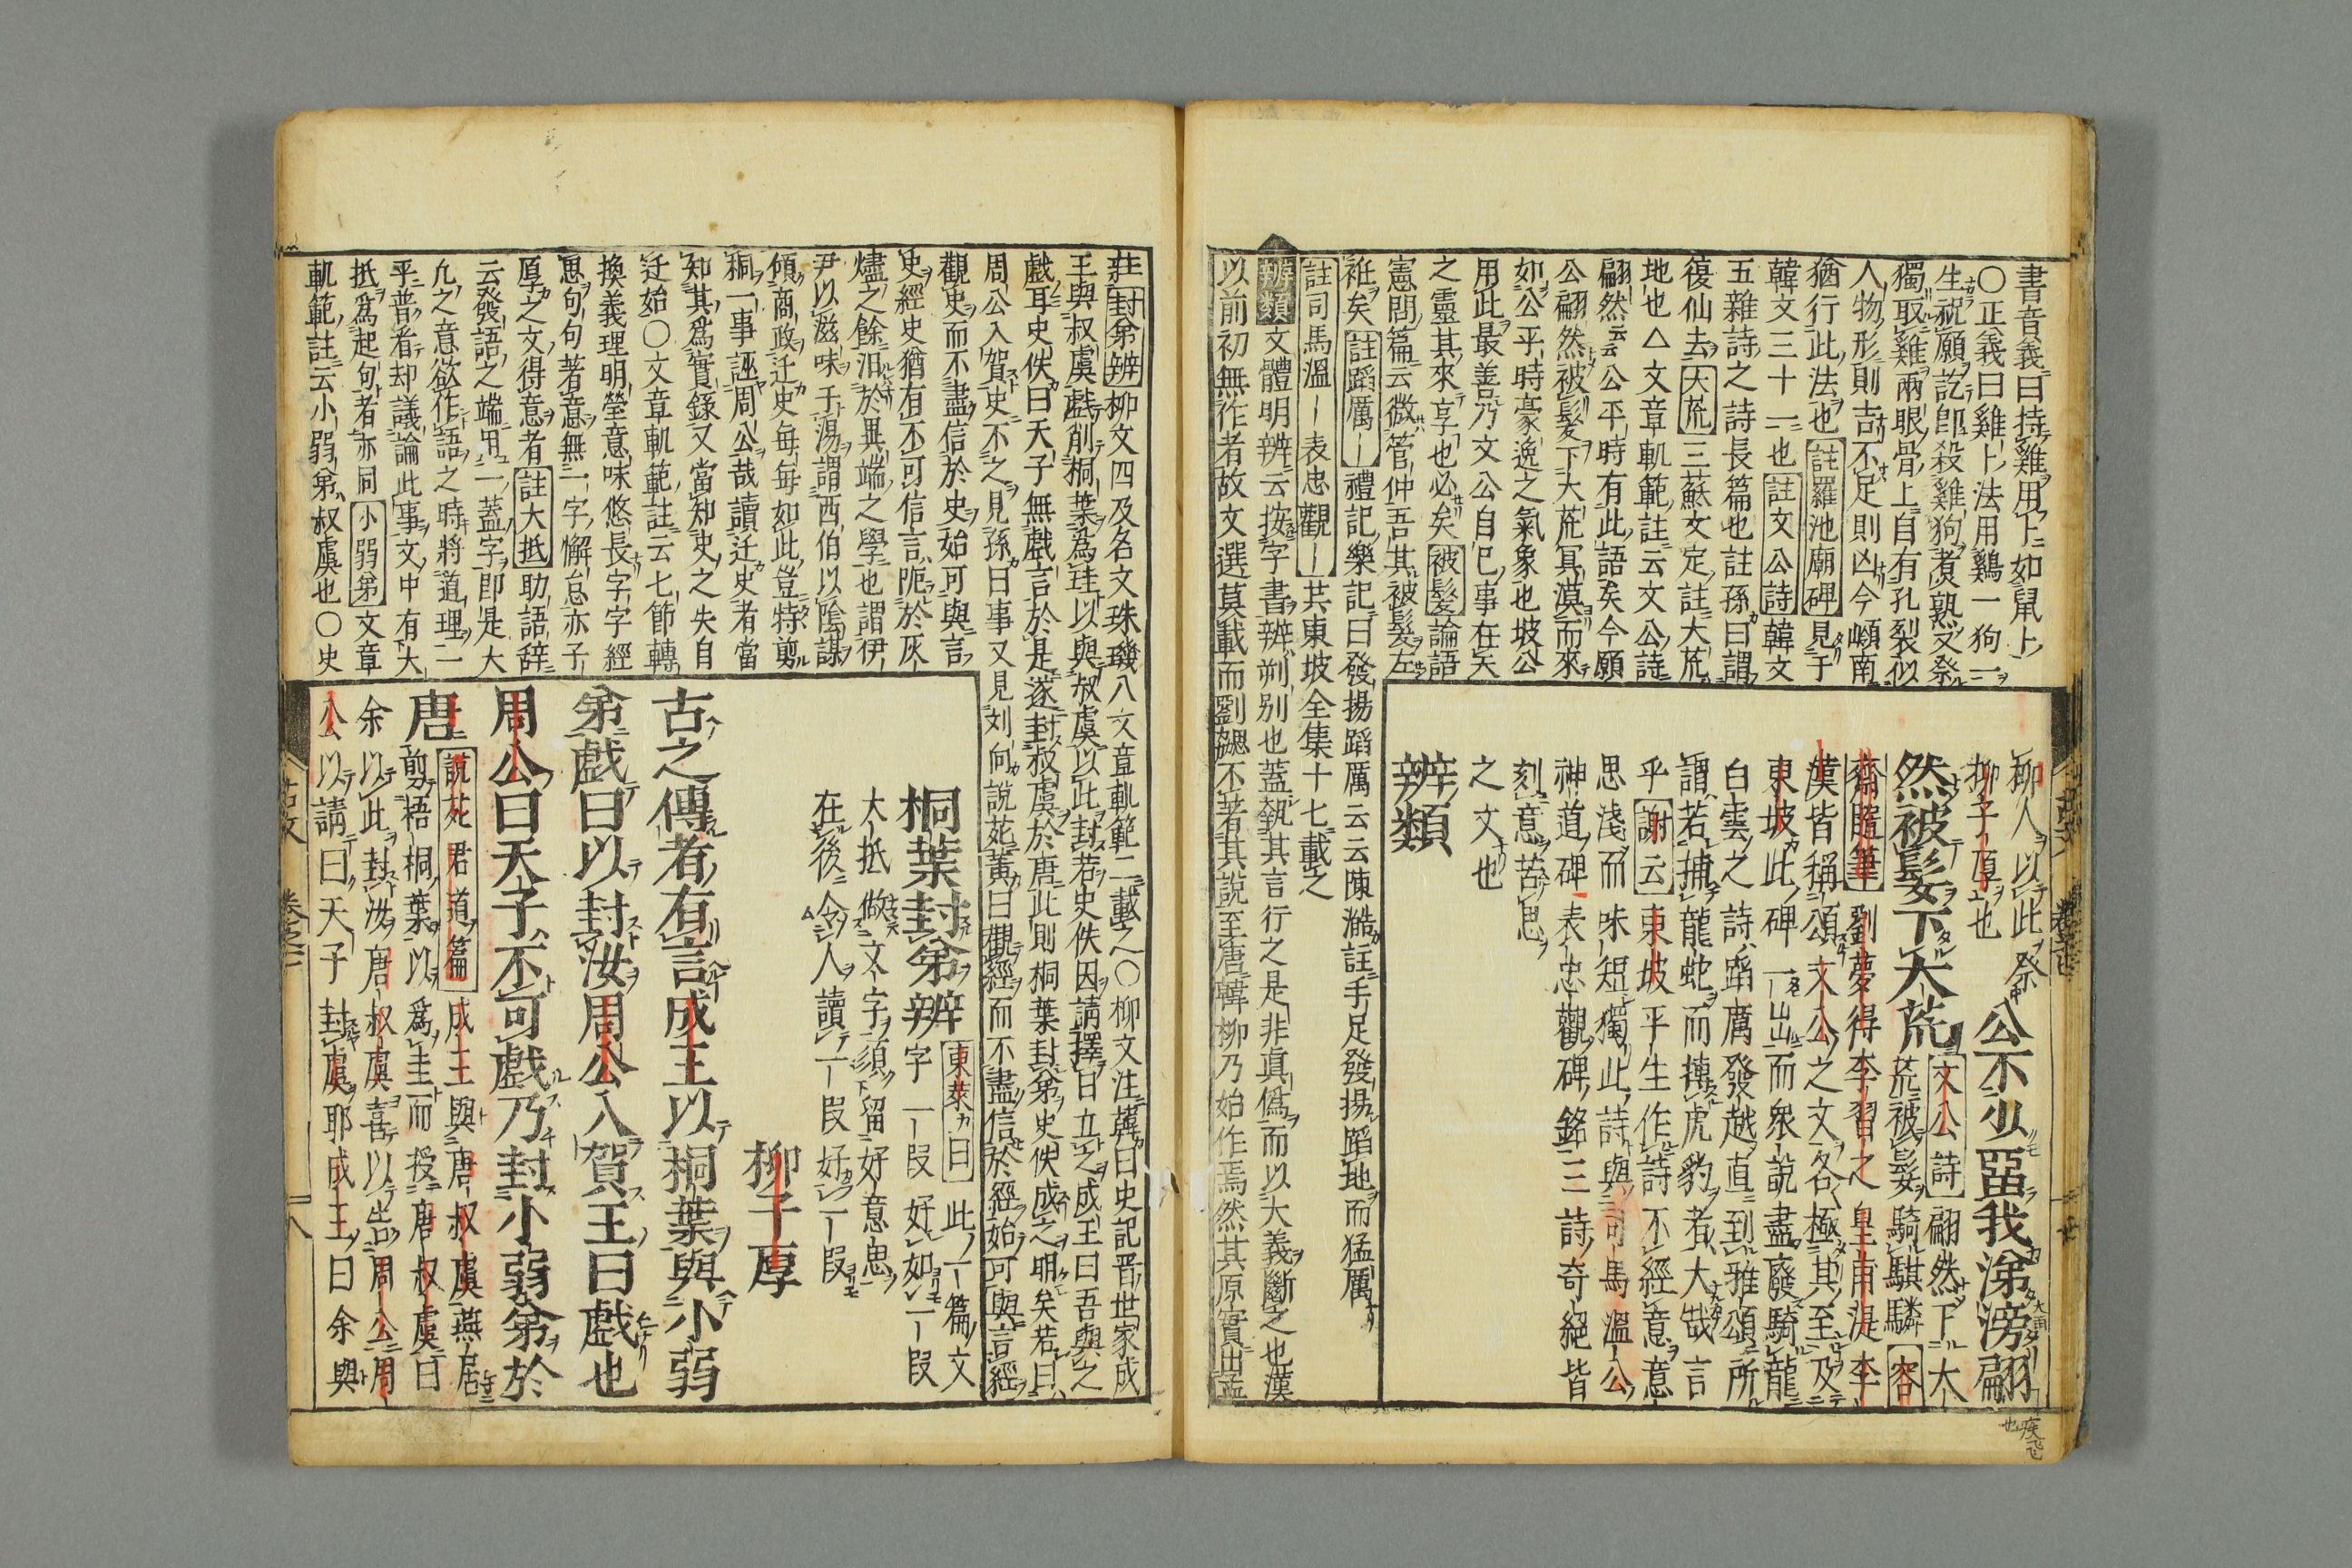 書音義曰持雞用卜如鼠卜
○正義曰雞卜法用鷄一狗一
生祝願訖即殺雞狗煮熟又祭
獨取雞兩眼骨上自有孔裂似
人物形則吉不足則凶今嶺南
猶行此法也註羅池廟碑見于
韓文三十一也註文公詩韓文
五雜詩之詩長篇也註孫曰謂
復仙去大荒三蘇文定註大荒
地也△文章軌範註云文公詩
翩然云云公平時有此語矣今願
公翩然被髮下大荒冥漠而來
如公乎時豪逸之氣象也坡公
用此最善乃文公自巳事在矢
之靈其來享也必矣被髮論語
憲問篇云微管仲吾其被髮左
衽矣註蹈厲｜禮記樂記曰發揚蹈厲云云陳澔註手足發揚蹈地而猛厲
註司馬溫｜表忠觀｜其東坡全集十七載之
辨類文體明辨云按字書辨判别也蓋執其言行之是非真僞而以大義斷之也漢
以前初無作者故文選莫載而劉勰不著其說至唐韓柳乃始作焉然其原實出孟
柳人以此祭
柳子厚也
公不少畱我涕滂翩
然被髮下大荒
文公詩翩然下大
荒被髮騎騏驎容
齋隨筆劉夢得李習之皇甫湜李
漢皆稱頌文公之文各極其至及
東坡此碑一出而衆說盡廢騎龍
白雲之詩蹈厲發越直到雅頌所
謂若捕龍蛇而搏虎豹者大哉言
乎謝云東坡平生作詩不經意意
思淺而味短獨此詩與司馬溫公
神道碑表忠觀碑銘三詩奇絕皆
刻意苦思
之文也
辨類
莊封弟辨柳文四及名文珠璣八文章軌範二載之○柳文注韓曰史記晋世家成
王與叔虞戲削桐葉爲珪以與叔虞以此封若史佚因請擇日立之成王曰吾與之
戲耳史佚曰天子無戲言於是遂封叔虞於唐此則桐葉封弟史佚成之明矣若曰
周公入賀史不之見孫曰事又見刘向說苑黃曰觀經而不盡信於經始可與言經
觀史而不盡信於史始可與言
史經史猶有不可信言陁於灰
燼之餘汨於異端之學也謂伊
尹以滋味干湯謂西伯以陰謀
傾商政迁史每每如此豈特剪
桐一事誣周公哉讀迁史者當
知其爲實錄又當知史之失自
迁始○文章軌範註云七節轉
換義理明瑩意味悠長字字經
思句句著意無一字懈怠亦子
厚之文得意者註大抵助語辞
云發語之端用一蓋字即是大
凢之意欲作語之時將道理一
乎普者却議論此事文中有大
抵爲起句者亦同小弱弟文章
軌範註云小弱弟叔虞也○史
桐葉封弟辨
東萊曰此一篇文
字一段好如一段
大抵做文字須留好意思
在後令人讀一段好一段
柳子厚
古之傳者有言成王以桐葉與小弱
弟戲曰以封汝周公入賀王曰戲也
周公曰天子不可戲乃封小弱弟於
唐
說苑君道篇成王與唐叔虞燕居
剪梧桐葉以爲圭而授唐叔虞曰
余以此封汝唐叔虞喜以告周公周
公以請曰天子封虞耶成王曰余與
古文
卷之一
一八
疾飛
也